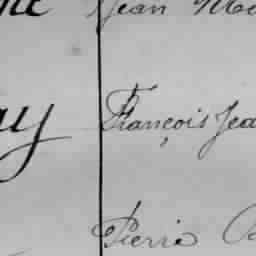 Jean
ay François Jea
Pierre